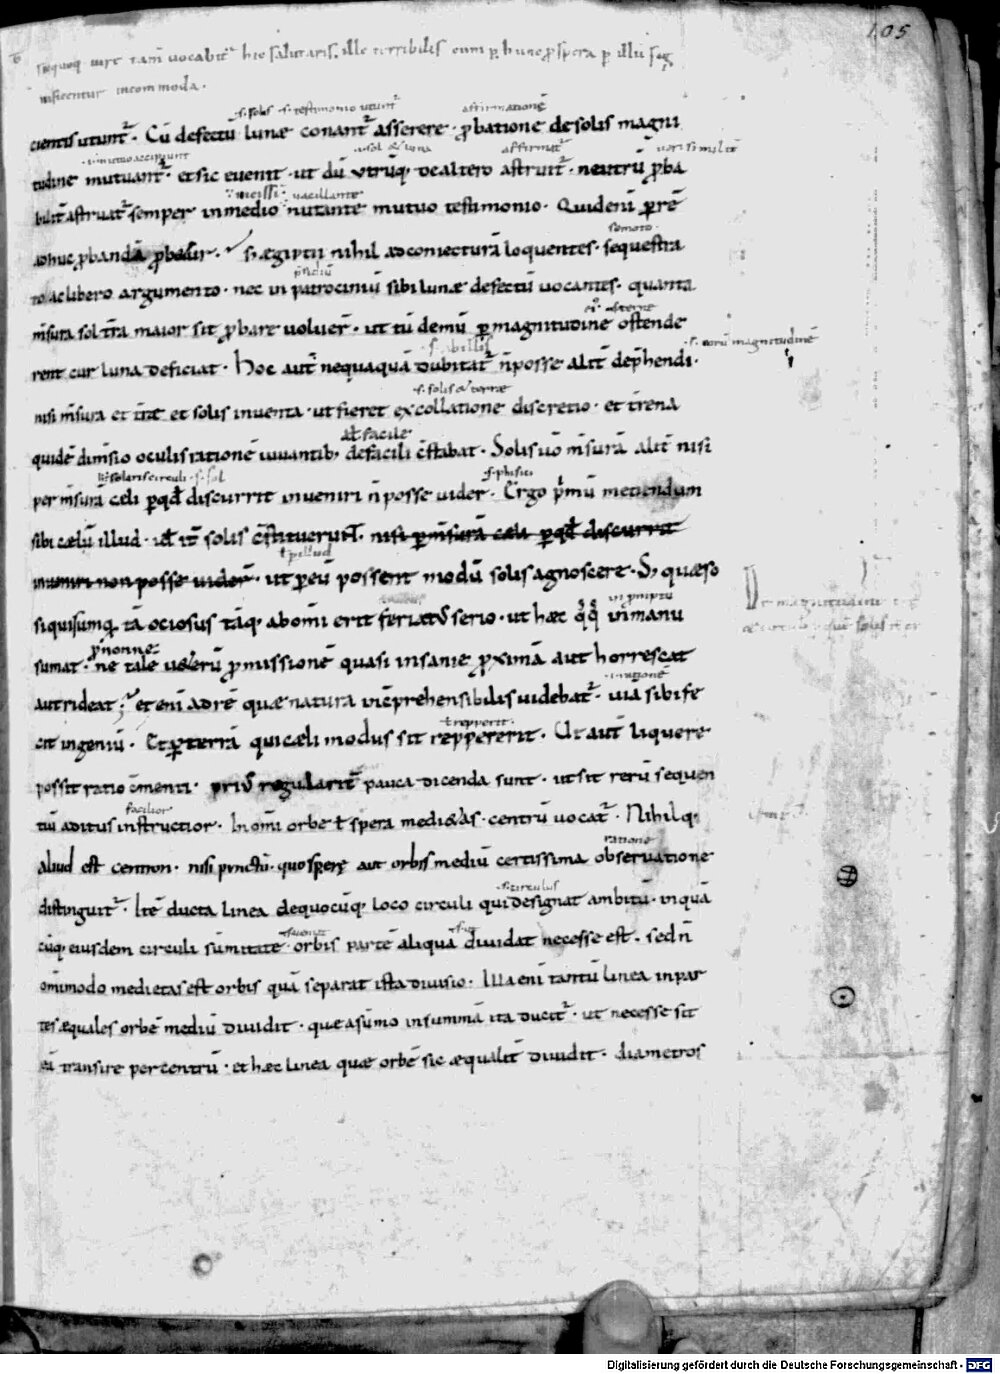 105
uocabit᷑ hic salutaris. ille terribilis cum ꝑ hunc ꝓspera ꝑ illū sig
nificentur incommoda.
.s. solis .s. testimonio utunt᷑ affirmationē
cientis utunt᷑. Cū defectū lunæ conant᷑ asserere. ꝓbatione de solis magni
.i. mutuo accipiunt .s. sol & luna affirmat᷑ uerisimilit̄
tudine mutuant᷑. et sic euenit. ut dū utrūq; de altero astruit᷑. neutrū ꝓba
uacillante
bilit̄ astruat᷑ semper in medio nutante mutuo testimonio. Quid enī ꝑ rē
semoto.
adhuc ꝓbandā ꝓbat᷑. S; ægiptii nihil ad coniecturā loquentes. sequestra
to ac libero argumento. nec in patrociniū sibi lunæ defectū uocantes. quanta
mensura sol t̄ra maior sit ꝓbare uoluer̄. ut tū demū ꝑ magnitudinē ostende
.s. eorū magnitudinē
rent cur luna deficiat. Hoc aut̄ nequaquā dubitat᷑ n̄ posse alit̄ dep̄hendi.
.s. solis & terræ
nisi m̄sura et t̄ræ et solis inuenta. ut fieret ex collatione discretio. et t̄rena
al̄ facile
quidē dim̄sio oculis rationē iuuantib; de facili c̄stabat. Solis uō m̄surā alit̄ nisi
.s. solaris circuli .s. sol .s. phisici
per m̄surā cæli ꝑ qd̄ discurrit inueniri n̄ posse uider̄. Ergo p̄mū metiendum
sibi cælū illud. id ē it̄ solis c̄stituerunt. nisi ꝑ m̄surā cæli ꝑ qd̄ discurrit
ł ꝑ illud
inueniri non posse uider̄. ut ꝑ eū possent modū solis agnoscere. S; quæso
in ꝓmptu
si quis umq̄ tā ociosus tāq; ab omī erit feriatus serio. ut hæc q̊q̊ in manu
ꝓ nonne
sumat. ne tale ueterū ꝓmissionē quasi insaniæ ꝓximā aut horrescat
.i. rationē
aut rideat; et enī ad rē quæ natura inc̄prehensibilis uidebat᷑. uiā sibi fe
ł repperit.
cit ingeniū. Et ꝑ terrā qui cæli modus sit reppererit. Ut aut̄ liquere
possit ratio c̄menti. prius regularit̄ pauca dicenda sunt. ut sit rerū sequen
facilior
tiū aditus instructior. In omī orbe ł spera medi&as. centrū uocat᷑. Nihilq;
ratione
aliud est centron. nisi punctū. quo sperę aut orbis mediū certissima obseruatione
.s. circulus
distinguit᷑. Itē ducta linea de quocūq; loco circuli qui designat ambitū. in quā
cūq; eiusdem circuli sūmitatē orbis partē aliquā diuidat necesse est. sed n̄
omīmodo medietas est orbis quā separat ista diuisio. Illa enī tantū linea in par
tes æquales orbē mediū diuidit. que a sūmo in summū ita ducit᷑. ut necesse sit
eā transire per centrū. et hæc linea quæ orbē sic æqualit̄ diuidit. diametros
Digitalisierung gefördert durch die Deutsche Forschungsgemeinschaft - DFG